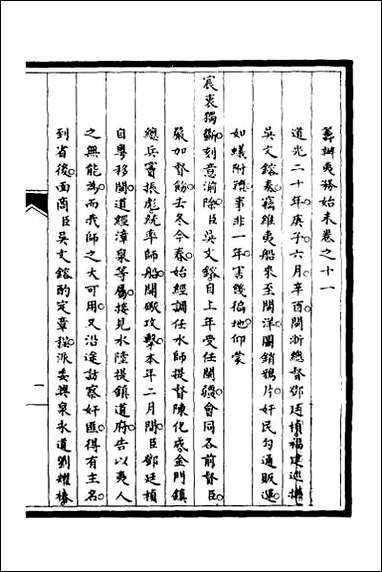 籌辦夷務始末卷之十一
道光二十年。庚子六月辛酉。閩浙總督鄧廷楨。福建巡撫
吳文鎔奏。竊維夷船來至閩洋。圖銷鴉片。奸民勾通販運。
如蟻附羶。事非一年。害幾徧地。仰蒙
宸衷獨斷。刻意湔除。臣吳文鎔自上年受任閩疆。會同各前督臣。
嚴加督飭。去冬今春。始經調任水師提督陳化成。金門鎮
總兵竇振彪。統率師船。開礮攻擊。本年二月間。臣鄧廷楨
自粵移閩。道經漳泉等屬。接見水陸提鎮道府。告以夷人
之無能為。而我師之大可用。又沿途訪察奸匪。得有主名。
到省後。面商臣吳文鎔。酌定章程。派委興泉永道劉耀椿。
一